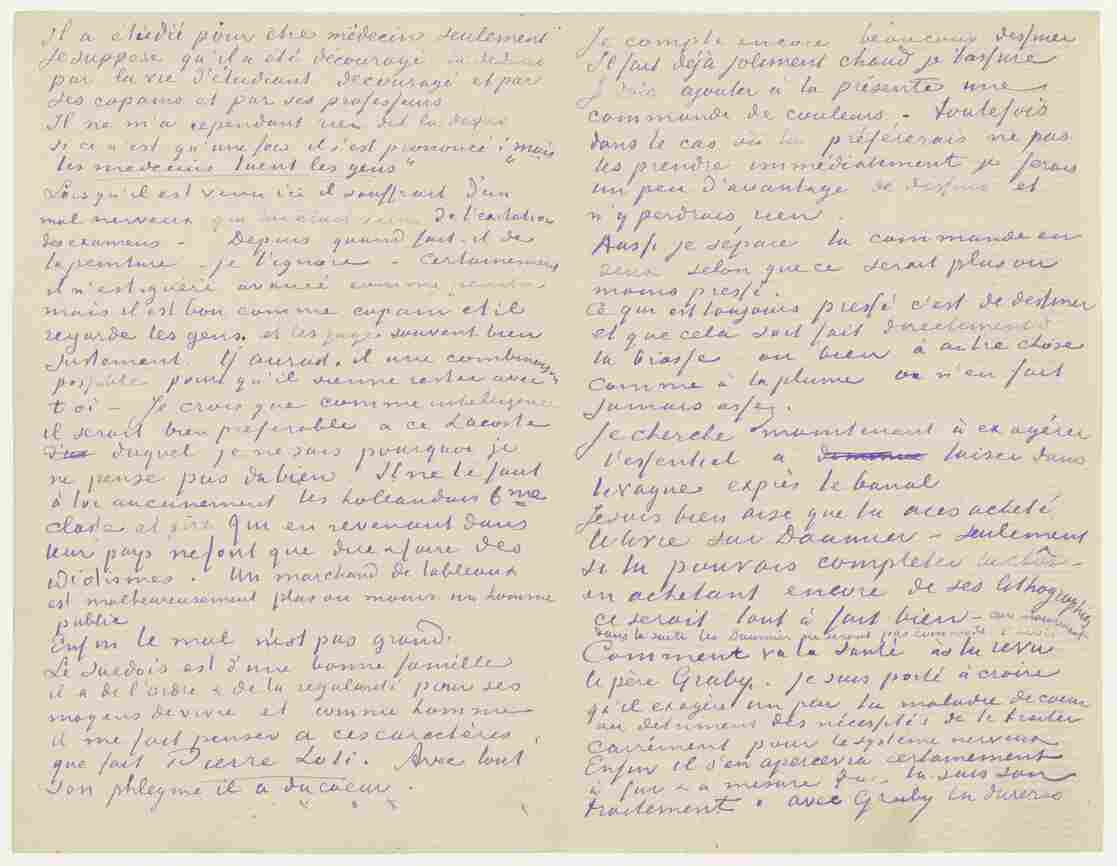 Il a étudié pour être médecin seulement
Je suppose qu'il a été découragé
par la vie d'étudiant découragé et par
ses copains et par ses professeurs
Il ne m'a cependant rien dit là dessus
si ce n'est qu'une fois il s'est prononcé "mais
les medecins tuent les gens"
Lorsqu'il est venu ici il souffrait d'un
mal nerveux qui de l'excitation
des examens – Depuis quand fait-il de
la peinture – je l'ignore – Certainement
il n'est guère avancé comme peintre
mais il est bon comme copain et il
regarde les gens. et les juge souvent bien
justement. Y aurait-il une combinaison
possible pour qu'il vienne rester avec
toi – Je crois que comme intelligence
il serait bien préférable a ce Lacoste
duquel je ne sais pourquoi je
ne pense pas du bien Il ne te faut
à toi aucunement les hollandais 6me
classe et pire qui en revenant dans
leur pays ne font que dire & faire des
idiotismes. Un marchand de tableaux
est malheureusement plus ou moins un homme
public
Enfin le mal n'est pas grand.
Le suedois est d'une bonne famille
il a de l'ordre & de la regularité pour ses
moyens de vivre et comme homme
il me fait penser a ces caractères
que fait Pierre Loti. Avec tout
son phlegme il a du coeur.
Je compte encore beaucoup dessiner
Il fait déjà joliment chaud je t'assure
Je vais ajouter à la présente une
commande de couleurs – toutefois
dans le cas ou tu préfèrerais ne pas
les prendre immédiatement je ferais
un peu d'avantage de dessins et
n'y perdrais rien.
Aussi je sépare la commande en
deux selon que ce serait plus ou
moins pressé.
Ce qui est toujours pressé c'est de dessiner
et que cela soit fait directement à
la brosse ou bien à autre chose
comme à la plume on n'en fait
jamais assez.
Je cherche maintenant à exagérer
l'essentiel a laisser dans
le vague exprès le banal
Je suis bien aise que tu aies acheté
le livre sur Daumier – seulement
si tu pouvais completer la chose
en achetant encore de ses lithographies
ce serait tout à fait bien – car
dans la suite les Daumier ne seront pas commodes a avoir
Comment va la santé as tu revu
le père Gruby. Je suis porté à croire
qu'il exagère un peu la maladie de coeur
au detriment des nécessités de te traiter
carrément pour le système nerveux
Enfin il s'en apercevra certainement
à fur & a mesure que tu suis son
traitement. avec Gruby tu dureras